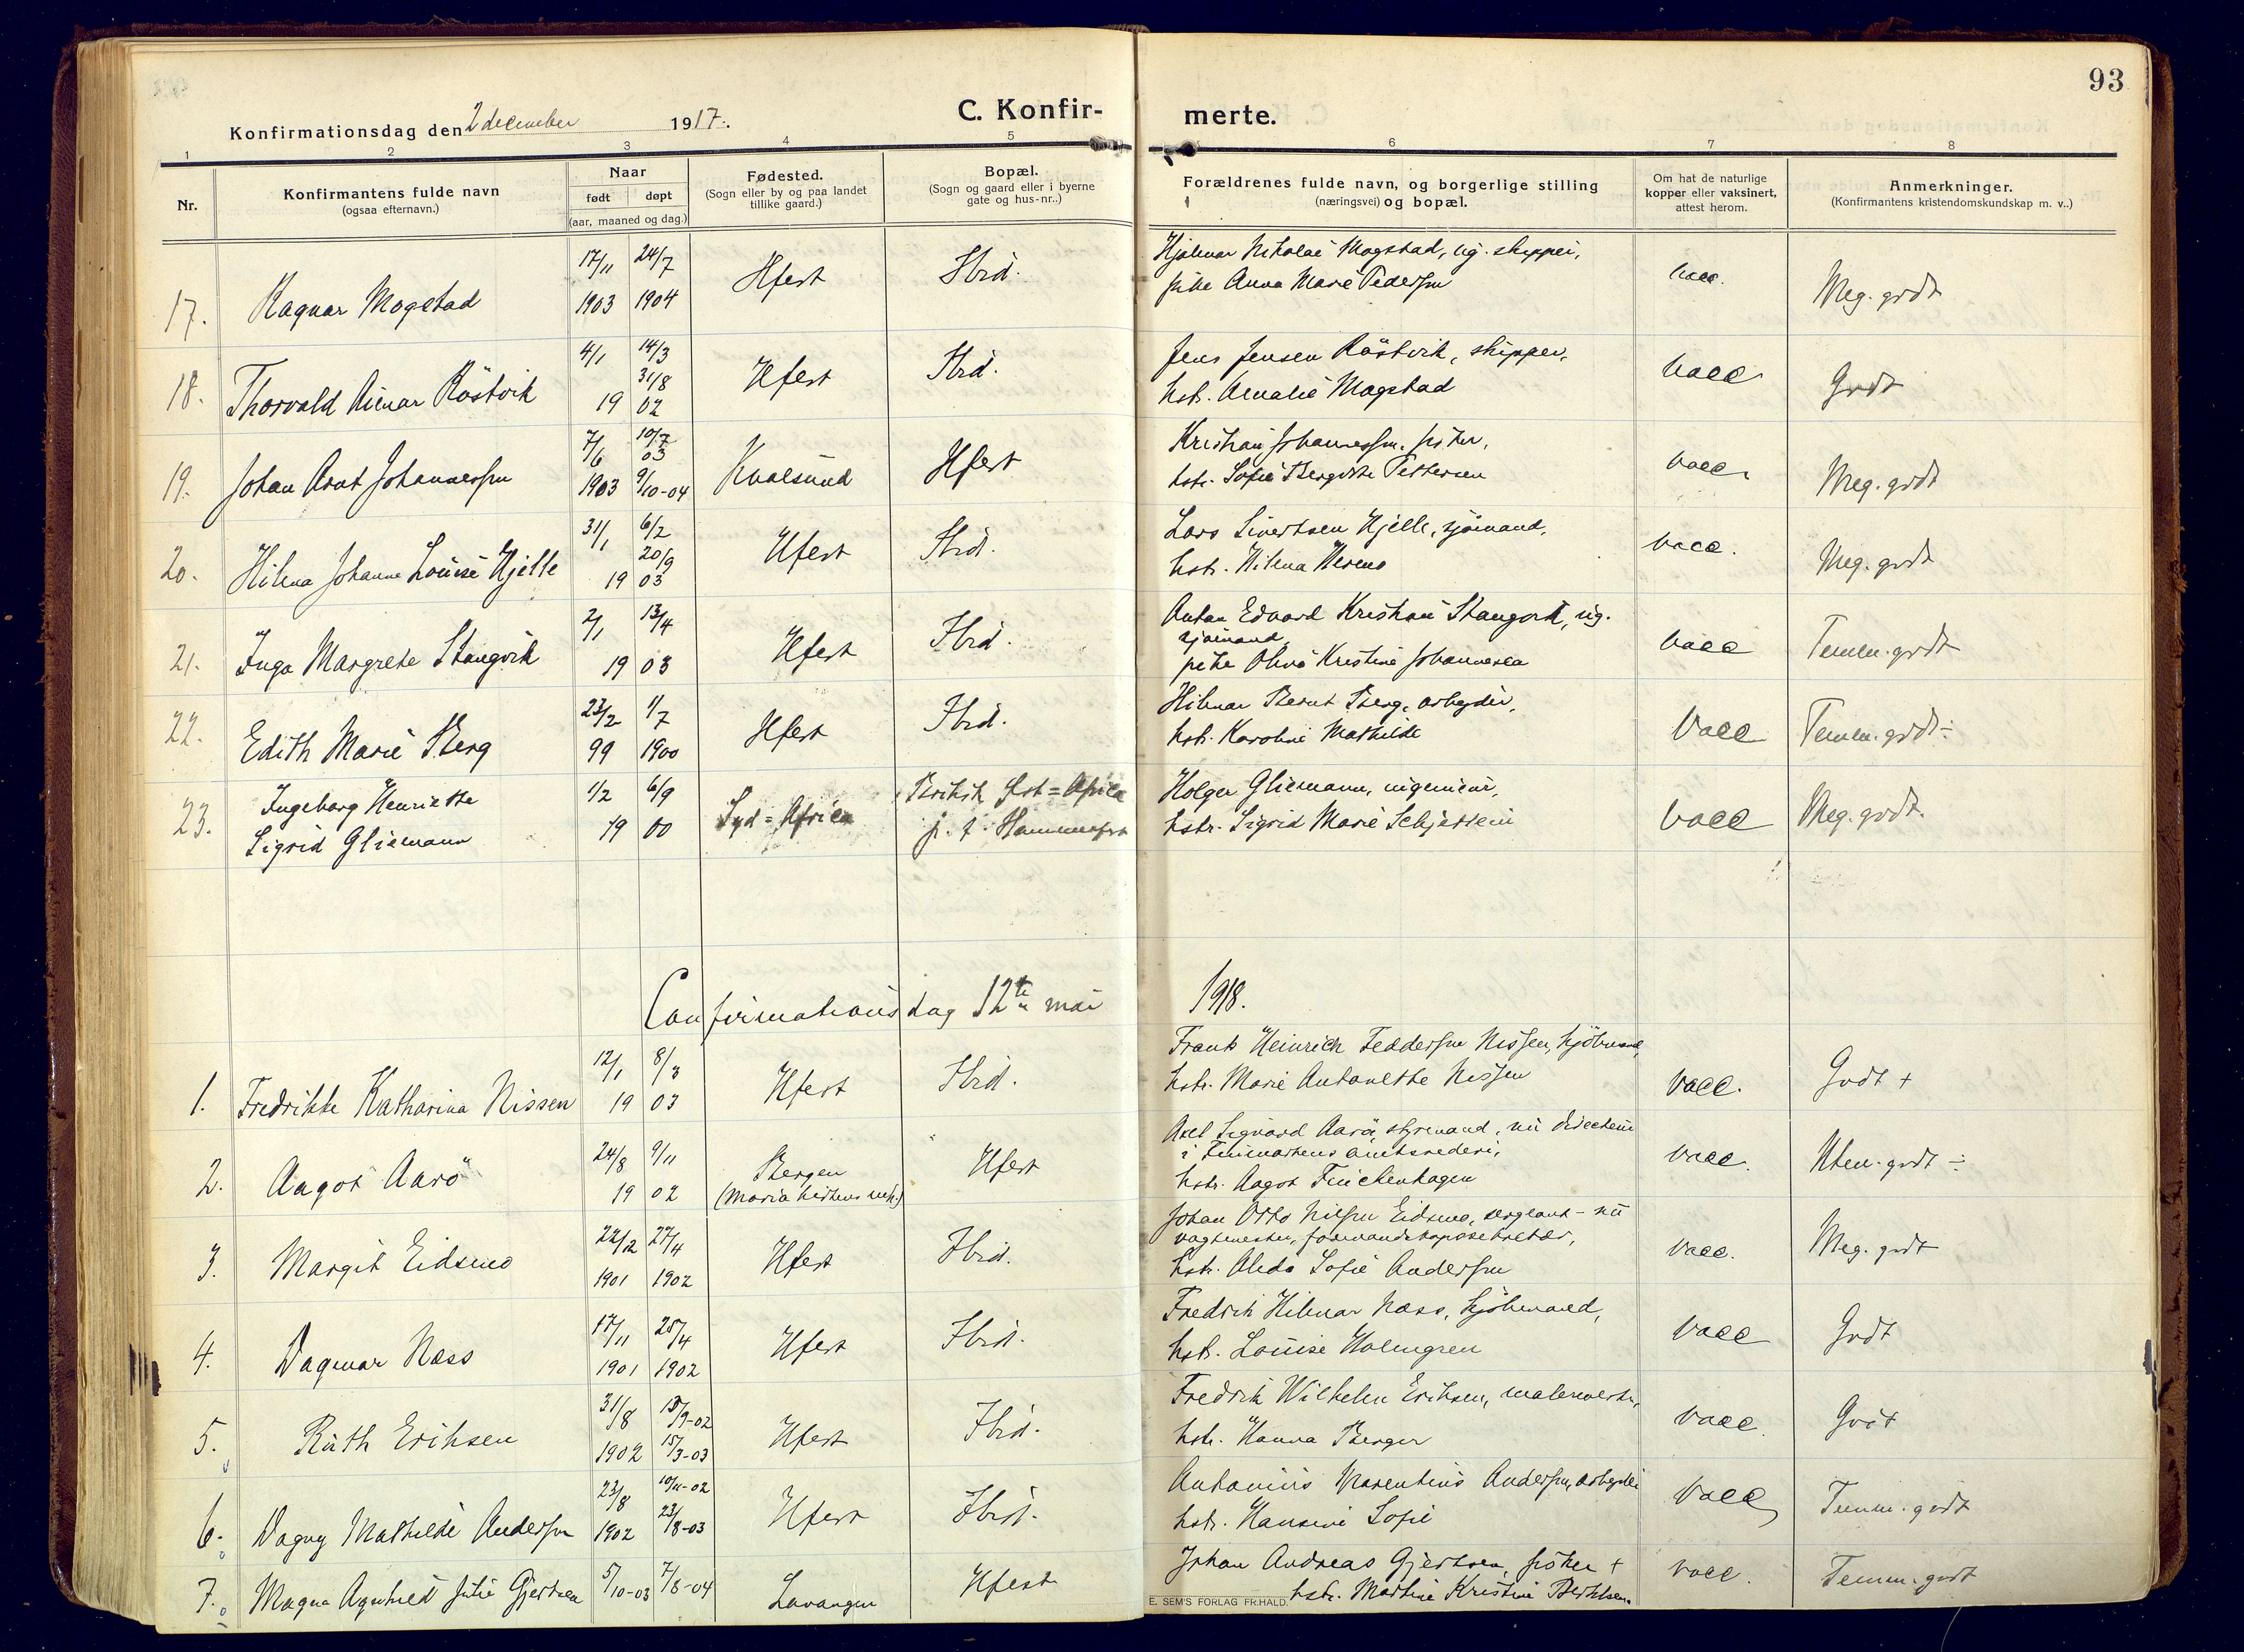 93
Konfirmationsdag den 2 december 1917.
C. Konfir-
merte.
1 2 3 4 5 6 7 8
Nr.
Konfirmantens fulde navn
(ogsaa efternavn.)
Naar
født døpt
(aar, maaned og dag.)
Fødested.
(Sogn eller by og paa landet
tillike gaard.)
Bopæl.
(Sogn og gaard eller i byerne
gate og hus-nr..)
Forældrenes fulde navn, og borgerlige stilling
(næringsvei) og bopæl.
Om hat de naturlige
kopper eller vaksinert,
attest herom.
Anmerkninger.
(Konfirmantens kristendomskundskap m. v..)
17. Ragnar Mogstad
17/11 1903 24/7 1904
Hfest Ibid.
Hjalmar Nikolai Mogstad, ug. skipper,
pike Anna Marie Pedersen
vacc. Meg. godt
18. Thorvald Röstvik
4/1 14/3 31/8 19 02
Hfest Ibid.
Jens Jensen Röstvik, skipper,
hstr. Amalie Mogstad
vacc Godt
19. Johan Arnt Johannessen
7/6 1903 10/7 03 9/10-04
Kvalsund Hfest
Kristian Johannessen, fisker,
hstr. Sofie Bergitte Pettersen
vacc. Meg. godt
20. Hilma Johanne Louise Hjelle
31/1 6/2 20/9 19 03
Hfest Ibid.
Lars Sivertsen Hjelle, sjömand,
hstr. Hilma
vacc. Meg. godt
21. Inga Margrete Stangvik
2/1 13/4 19 03
Hfest Ibid.
Anton Edvard Kristian Stangvik, ug.
sjömand,
pike Oliva Kristine Johannesen
vacc Temm. godt
22. Edith Marie Berg
23/2 99 1/7 1900
Hfest Ibid.
Hilmar Bernt Berg, arbeyder,
hstr. Karoline Mathilde
vacc Temm. godt ÷
23. Ingeborg Henriette
Sigrid Gliemann
1/2 6/9 19 00
Syd=Africa
Britisk Öst=Africa
p. t. Hammerfest
Holger Gliemann, ingenieur,
hstr. Sigrid Marie
vacc Meg. godt.
Confirmationsdag 12te mai 1918.
1. Fredrikke Katharina Nissen
12/1 8/3 19 03
Hfest Ibid.
Frank Heinrich Feddersen Nissen, kjöbmand,
hstr. Marie Antonette Nissen
vacc. Godt +
2. Aagot Aarö
24/8 9/11 19 02
Bergen
(Maria kirkens mh.)
Hfest
Axel Sigvard Aarö, styrmand, nu directeur
i Finmarkens amtsrederi,
hstr. Aagot Finckenhagen
vacc. Uten. godt ÷
3. Margit Eidsmo
22/12 1901 27/4 1902
Hfest Ibid.
Johan Otto Nilsen Eidsmo, sergeant - nu
vagtmester, formandskapssekretær,
hstr. Alida Sofie Andersen
vacc. Meg. godt
4. Dagmar Næss
17/11 1901 25/4 1902
Hfest Ibid.
Fredrik Hilmar Næss, kjöbmand,
hstr. Louise Holmgren
vacc Godt
5. Ruth Eriksen
31/8 1902 15/3-03
Hfest Ibid.
Fredrik Wilhelm Eriksen, malermestr.,
hstr. Hanna Berger
vacc Godt
6. Dagny Mathilde Andersen
23/8 1902 10/11-02 23/8-03
Hfest Ibid.
Antonius Andersen, arbeyder
hstr. Hansine Sofie
vacc Temm. godt
7. Magna Agnhild Julie Gjertsen
5/10-03 7/8-04
Lavangen Hfest
Johan Andreas Gjertsen, fisker +
hstr. Martine Kristine Berthelsen.
vacc. Temm. godt
E. SEM'S FORLAG FR.HALD.